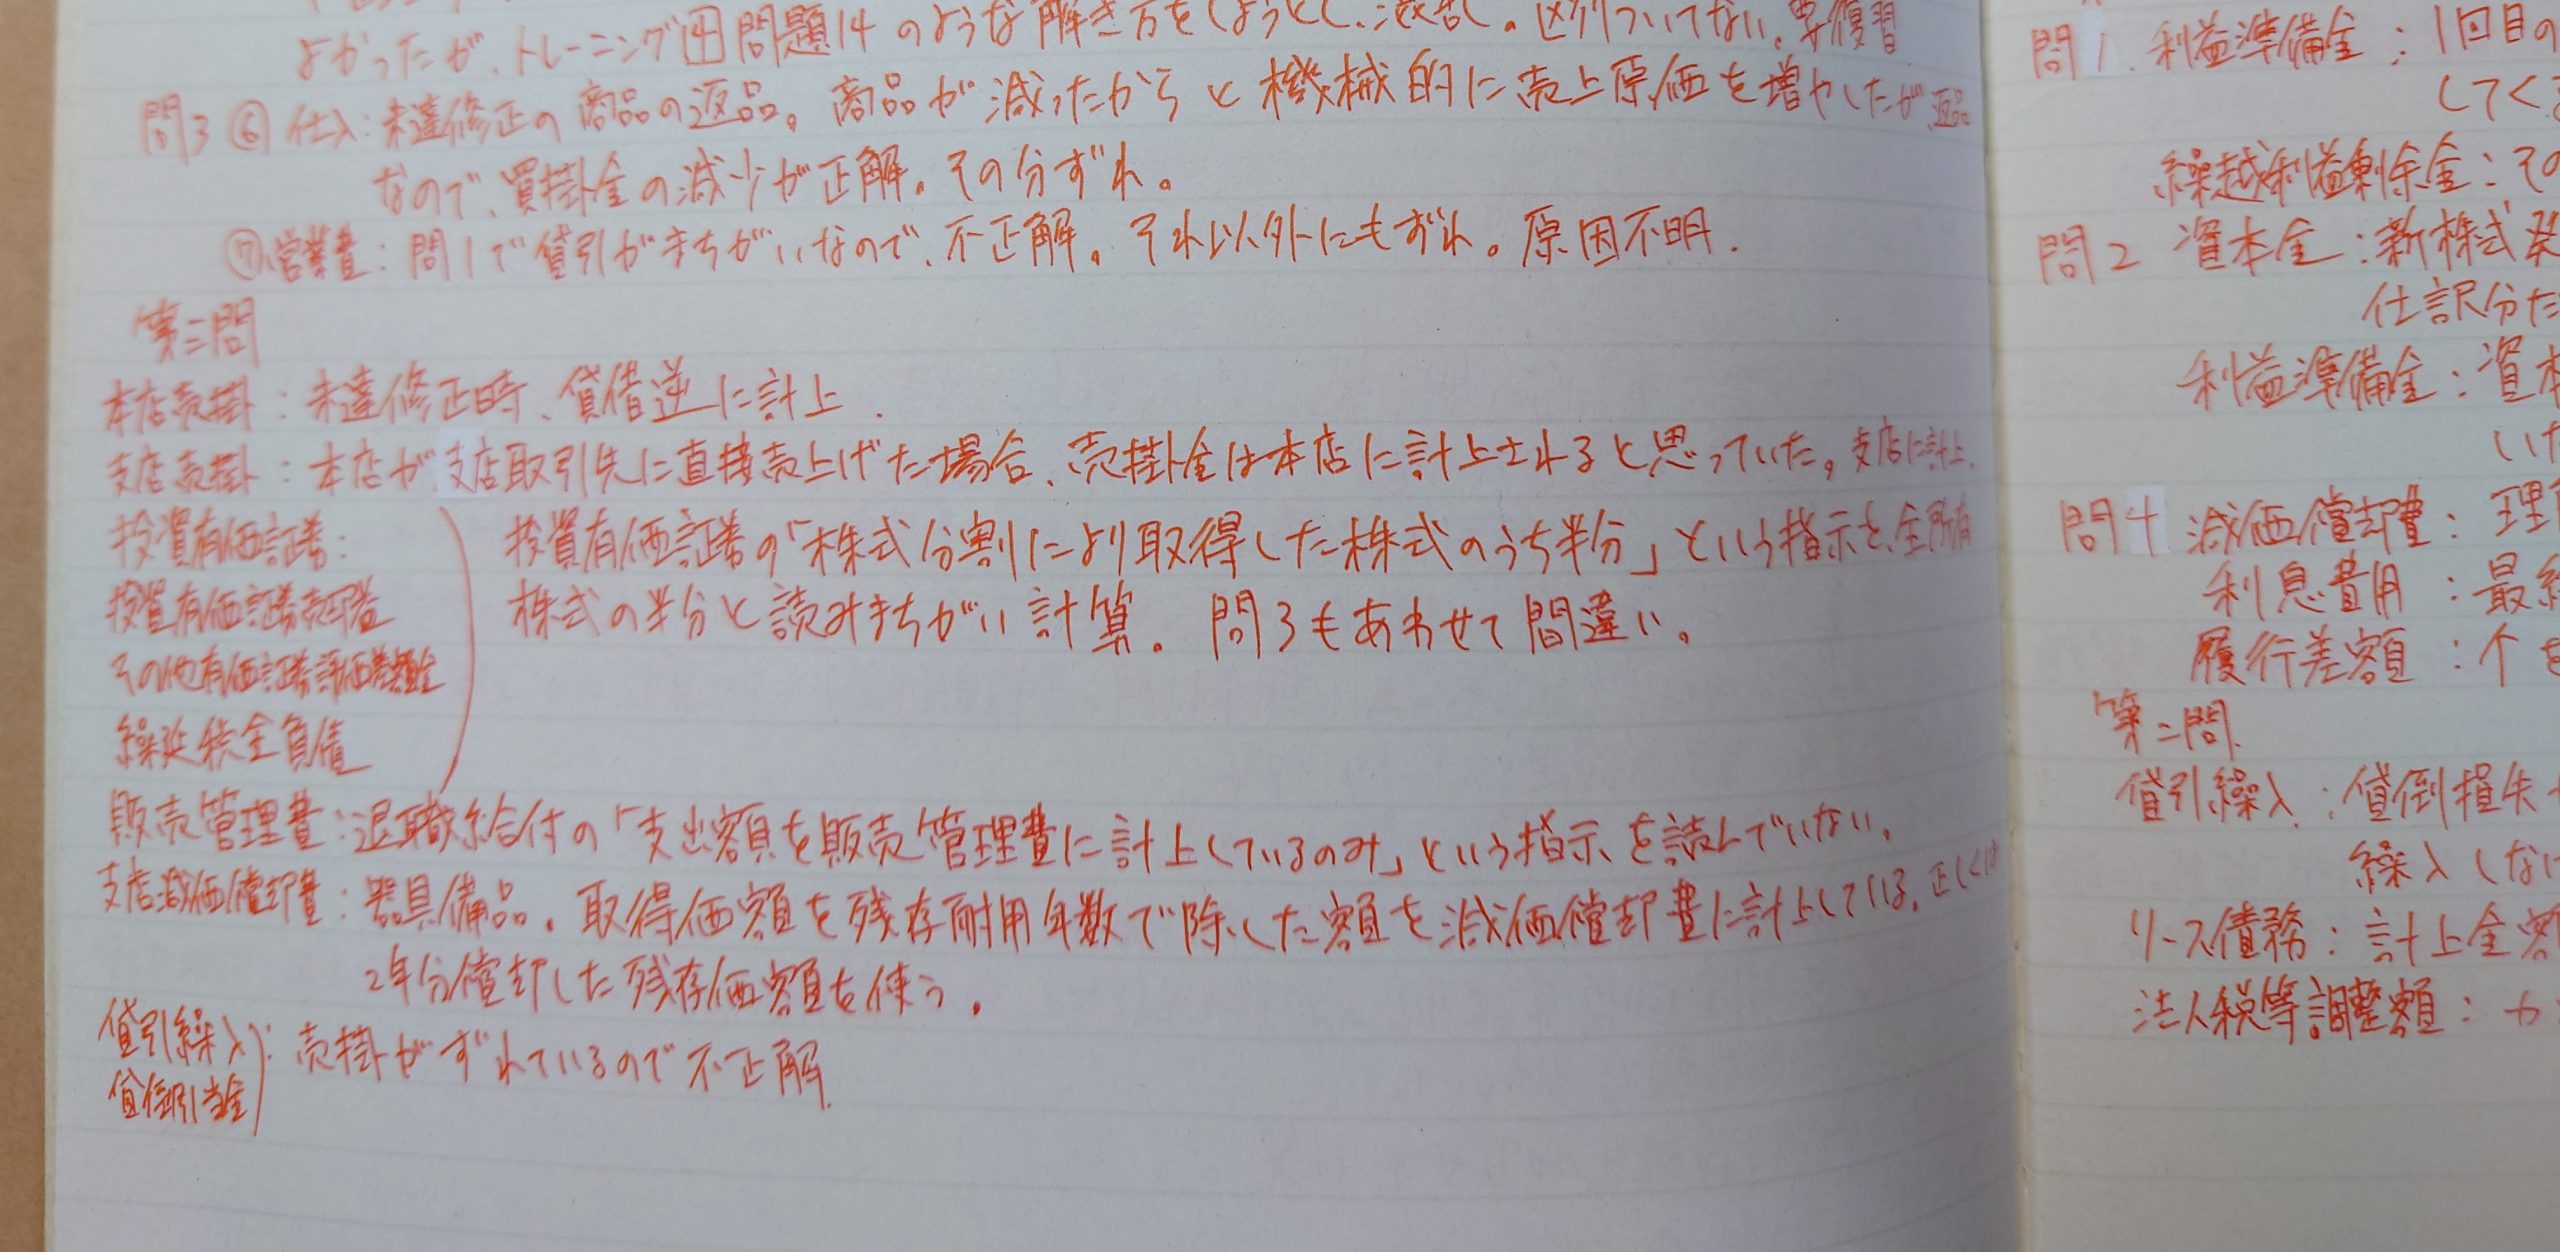 よかったが、トレーニング14問題14のような解き方をしようとし、混乱。区別ついてない。要復習
問3 ⑥ 仕入：未達修正の商品の返品。商品が減ったからと機械的に売上原価を増やしたが返品
なので、買掛金の減少が正解。その分ずれ。
⑦営業費：問1で貸引がまちがいなので、不正解。それ以外にもずれ。原因不明．
第三問
本店売掛：未達修正時、貸借逆に計上．
支店売掛：本店が支店取引先に直接売上げた場合、売掛金は本店に計上されると思っていた。支店に計上．
投資有価証券：
投資有価証券の「株式分割により取得した株式のうち半分」という指示を、全所有
投資有価証券売却益
株式の半分と読みまちがい計算．問3もあわせて間違い。
その他有価証券評価差額金
繰延税金負債
販売管理費：退職給付の「支出額を販売管理費に計上しているのみ」という指示を読んでいない。
支店減価償却費：器具備品．取得価額を残存耐用年数で除した額を減価償却費に計上している．正しくは
2年分償却した残存価額を使う．
貸引繰入
貸倒引当金
：売掛がずれているので不正解．
問1．利益準備金：1回目の
してくる
繰越利益剰余金：その
問2 資本金：新株式発
仕訳分た
利益準備金：資本
いた
問4 減価償却費：理
利息費用：最終
履行差額：个を
第二問．
貸引繰入：貸倒損失
繰入しない
リース債務：計上金額
法人税等調整額：カ